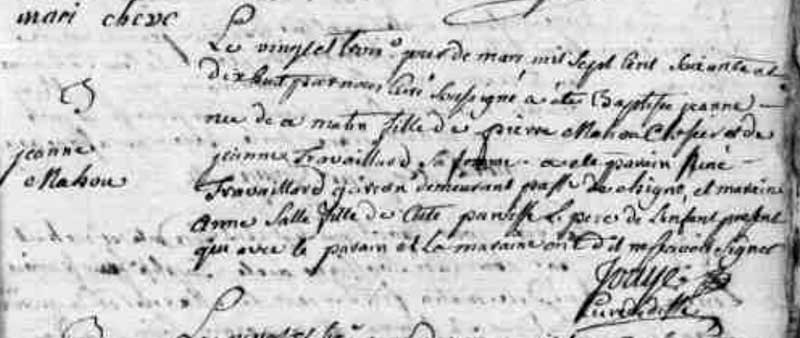 mari cheve
Le vingt et trois jour de mars mil sept cent soixante et
dix huit par nous Curé soussigné a été Baptisée jeanne
née de ce matin fille de pierre Mahou et de
jeanne
Mahou
jeanne Travaillard sa femme a été parain René
Travaillard garcon demeurant et maraine
Anne Salle fille de cette paroisse Le pere de L'enfant présent
qui avec le parain et La maraine ont dit ne scavoir signer